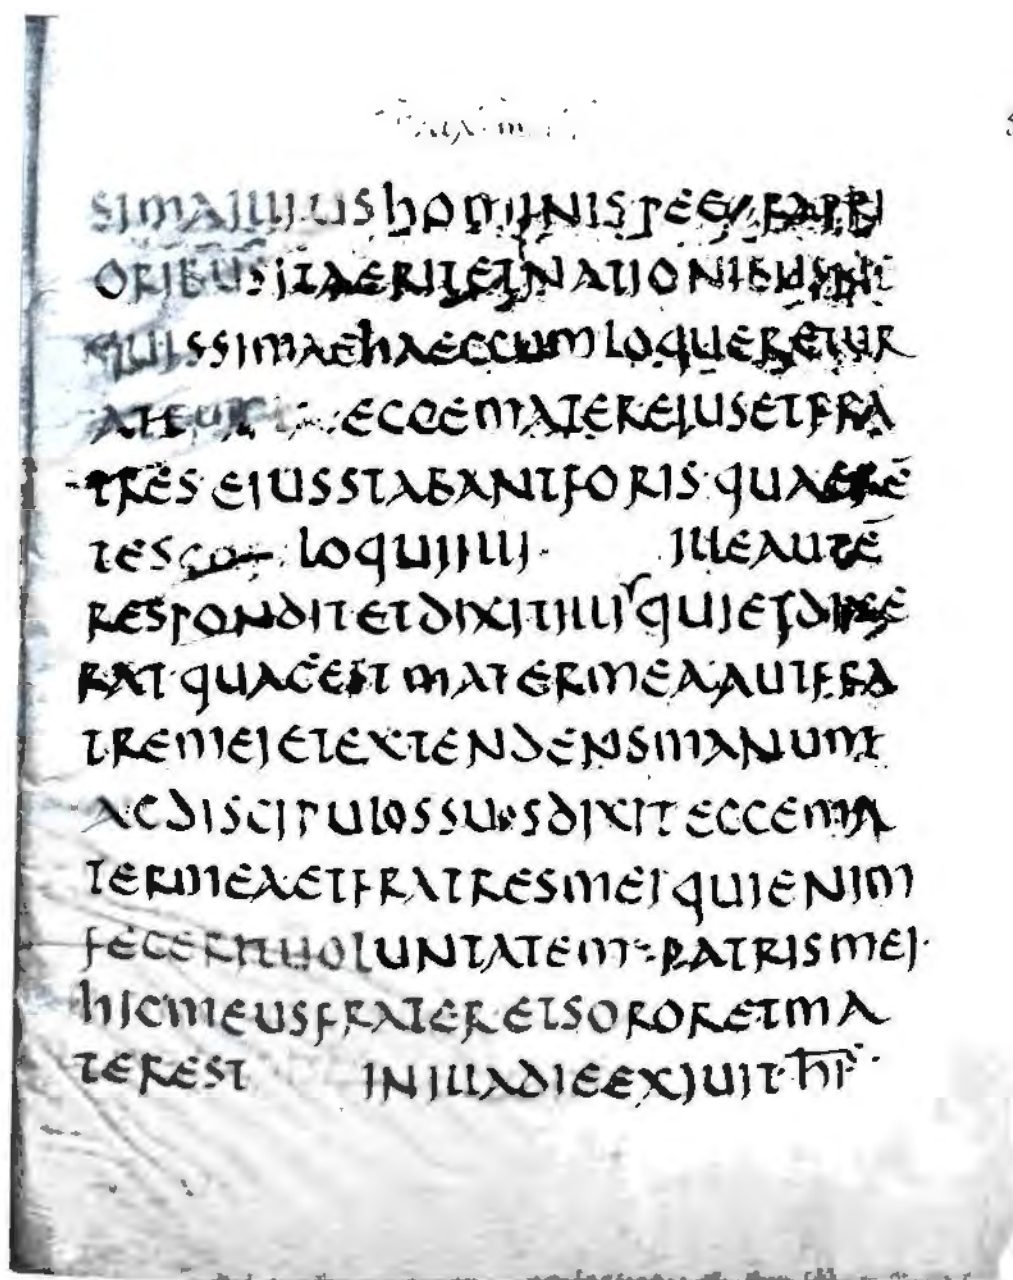 SIMA ILLIUS hOMINIS PEE PRI
ORIBUS ITA ERIT ET NATIONI
QUISSIMAE hAEC CUM LOQUERETUR
ECCE MATER EIUS ET FRA
TRES EIUS STABANT FORIS QUAERĒ
TES LOQUI ILLI ILLE AUTĒ
RESPONDIT ET DIXIT ILLI QUI EI
RAT QUAE EST MATER MEA AUT FRA
TRE MEI ET EXTENDENS MANUM
AC DISCIPULOS SUOS DIXIT ECCE MA
TER MEA ET FRATRES MEI QUI ENIM
FECERIT UOLUNTATEM PATRIS MEI
hIC MEUS FRATER ET SOROR ET MA
TER EST IN ILLA DIE EXIUIT